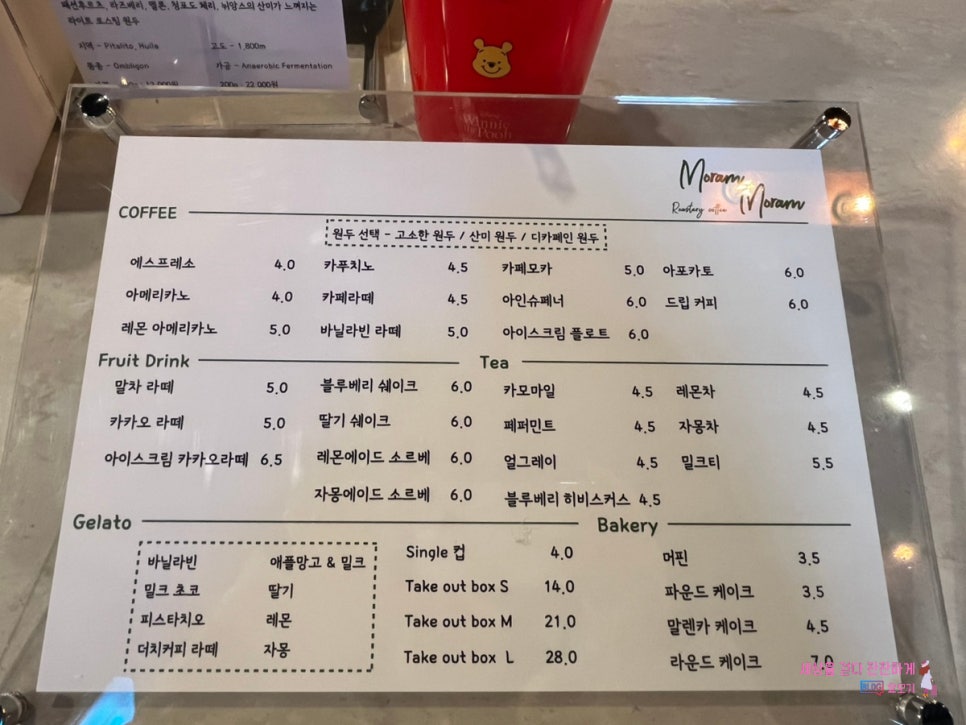 패션후르츠, 라즈베리, 멜론, 청포도 체리, 뉘앙스의 산미가 느껴지는
라이트 로스팅 원두
지역 - Pitalito, Huila 고도 - 1,800m
품종 - Ombligon 가공 - Anaerobic Fermentation
200g - 22,000원
Winnie
the Pooh
Moram
Moram
Roastary coffee
COFFEE
원두 선택 - 고소한 원두 / 산미 원두 / 디카페인 원두
에스프레소 4.0 카푸치노 4.5 카페모카 5.0 아포카토 6.0
아메리카노 4.0 카페라떼 4.5 아인슈페너 6.0 드립 커피 6.0
레몬 아메리카노 5.0 바닐라빈 라떼 5.0 아이스크림 플로트 6.0
Fruit Drink
말차 라떼 5.0 블루베리 쉐이크 6.0
카카오 라떼 5.0 딸기 쉐이크 6.0
아이스크림 카카오라떼 6.5 레몬에이드 소르베 6.0
자몽에이드 소르베 6.0
Tea
카모마일 4.5 레몬차 4.5
페퍼민트 4.5 자몽차 4.5
얼그레이 4.5 밀크티 5.5
블루베리 히비스커스 4.5
Gelato
바닐라빈 애플망고 & 밀크
밀크 초코 딸기
피스타치오 레몬
더치커피 라떼 자몽
Single 컵 4.0
Take out box S 14.0
Take out box M 21.0
Take out box L 28.0
Bakery
머핀 3.5
파운드 케이크 3.5
말렌카 케이크 4.5
라운드 케이크 7.0